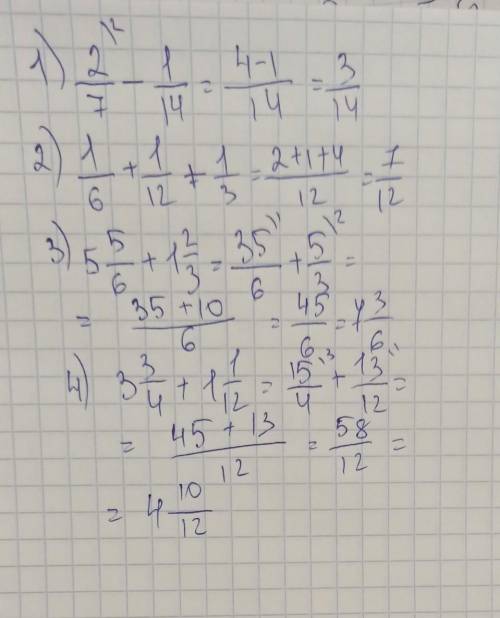 1) 2/7 \2 - 1/14 = 4-1/14 = 3/14
2) 1/6 + 1/12 + 1/3 = 2+1+4/12 = 7/12
3) 5 5/6 + 1 2/3 = 35/6 \1 + 5/3 \2 =
= 35+10/6 = 45/6 = 7 3/6
4) 3 3/4 + 1 1/12 = 15/4 \3 + 13/12 \1 =
= 45+13/12 = 58/12 =
= 4 10/12